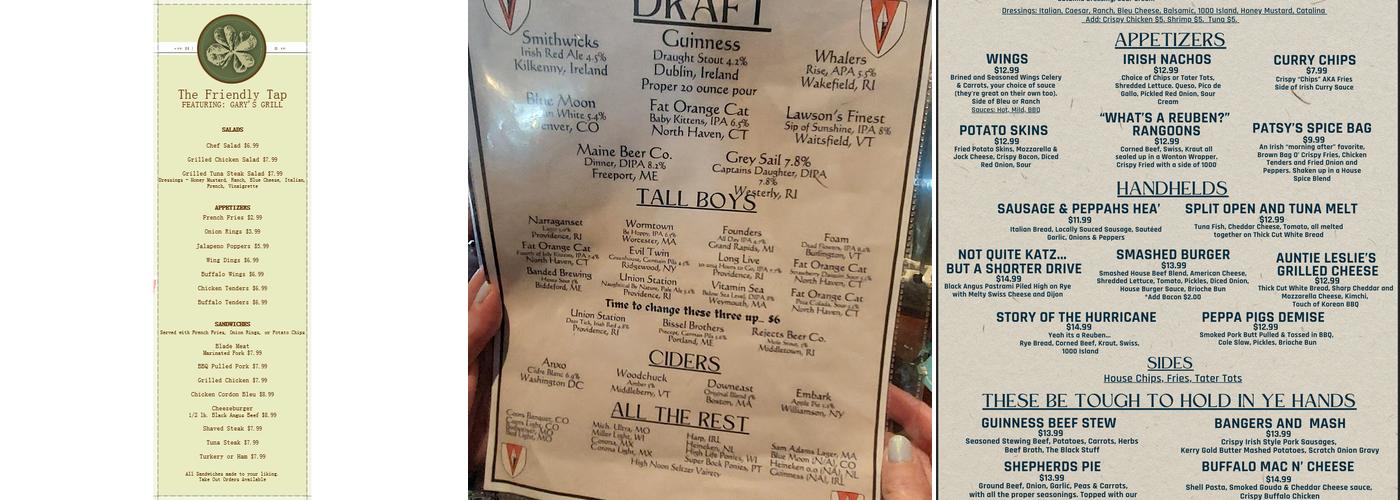 The Friendly Tap
FEATURING: GARY'S GRILL
SALADS
Chef Salad $6.99
Grilled Chicken Salad $7.99
Grilled Tuna Steak Salad $7.99
Dressings - Honey Mustard, Ranch, Blue Cheese, Italian,
French, Vinaigrette
APPETIZERS
French Fries $2.99
Onion Rings $3.99
Jalapeno Poppers $5.99
Wing Dings $6.99
Buffalo Wings $6.99
Chicken Tenders $6.99
Buffalo Tenders $6.99
SANDWICHES
Served with French Fries, Onion Rings, or Potato Chips
Blade Meat
Marinated Pork $7.99
BBQ Pulled Pork $7.99
Grilled Chicken $7.99
Chicken Cordon Bleu $8.99
Cheeseburger
1/2 lb. Black Angus Beef $8.99
Shaved Steak $7.99
Tuna Steak $7.99
Turkery or Ham $7.99
All Sandwiches made to your liking.
Take Out Orders Available
DRAFT
Smithwicks
Irish Red Ale 4.5%
Kilkenny, Ireland
Guinness
Draught Stout 4.2%
Dublin, Ireland
Proper 20 ounce pour
Whalers
Rise, APA 5.5%
Wakefield, RI
Blue Moon
White 5.4%
Denver, CO
Fat Orange Cat
Baby Kittens, IPA 6.5%
North Haven, CT
Lawson's Finest
Sip of Sunshine, IPA 8%
Waitsfield, VT
Maine Beer Co.
Dinner, DIPA 8.2%
Freeport, ME
Grey Sail 7.8%
Captains Daughter, DIPA
7.8%
Westerly, RI
TALL BOYS
Narraganset
Lager 5.0%
Providence, RI
Wormtown
Be Hoppy, IPA 6.5%
Worcester, MA
Founders
All Day IPA 4.7%
Grand Rapids, MI
Foam
Dead Flowers, IPA
Burlington, VT
Fat Orange Cat
North Haven, CT
Evil Twin
Ridgewood, NY
Long Live
Providence, RI
Fat Orange Cat
North Haven, CT
Banded Brewing
Biddeford, ME
Union Station
Providence, RI
Vitamin Sea
Weymouth, MA
Fat Orange Cat
North Haven, CT
Time to change these three up... $6
Union Station
Providence, RI
Bissel Brothers
Portland, ME
Rejects Beer Co.
Middletown, RI
CIDERS
Anxo
Cidre Blanc 6.9%
Washington DC
Woodchuck
Amber 5%
Middleberry, VT
Downeast
Original Blend 5%
Boston, MA
Embark
Williamson, NY
ALL THE REST
Coors Banquet, CO
Mich. Ultra, MO
Miller Light, WI
Corona, MX
Corona Light, MX
Harp, IRL
Heineken, NL
High Life Ponies, WI
Super Bock Ponies, PT
Sam Adams Lager, MA
Blue Moon (N/A), CO
Heineken 0.0 (NA), NL
Guinness (NA), IRL
High Noon Seltzer Vairety
Dressings: Italian, Caesar, Ranch, Bleu Cheese, Balsamic, 1000 Island, Honey Mustard, Catalina
Add: Crispy Chicken $5, Shrimp $5, Tuna $5.
APPETIZERS
WINGS
$12.99
Brined and Seasoned Wings Celery
& Carrots, your choice of sauce
(they're great on their own too).
Side of Bleu or Ranch
Sauces: Hot, Mild, BBQ
IRISH NACHOS
$12.99
Choice of Chips or Tater Tots,
Shredded Lettuce, Queso, Pico de
Gallo, Pickled Red Onion, Sour
Cream
CURRY CHIPS
$7.99
Crispy "Chips" AKA Fries
Side of Irish Curry Sauce
POTATO SKINS
$12.99
Fried Potato Skins, Mozzarella &
Jack Cheese, Crispy Bacon, Diced
Red Onion, Sour
"WHAT'S A REUBEN?"
RANGOONS
$12.99
Corned Beef, Swiss, Kraut all
sealed up in a Wonton Wrapper.
Crispy Fried with a side of 1000
PATSY'S SPICE BAG
$9.99
An Irish "morning after" favorite,
Brown Bag O' Crispy Fries, Chicken
Tenders and Fried Onion and
Peppers. Shaken up in a House
Spice Blend
HANDHELDS
SAUSAGE & PEPPAHS HEA'
$11.99
Italian Bread, Locally Souced Sausage, Sautéed
Garlic, Onions & Peppers
SPLIT OPEN AND TUNA MELT
$12.99
Tuna Fish, Cheddar Cheese, Tomato, all melted
together on Thick Cut White Bread
NOT QUITE KATZ...
BUT A SHORTER DRIVE
$14.99
Black Angus Pastrami Piled High on Rye
with Melty Swiss Cheese and Dijon
SMASHED BURGER
$13.99
Smashed House Beef Blend, American Cheese,
Shredded Lettuce, Tomato, Pickles, Diced Onion,
House Burger Sauce, Brioche Bun
*Add Bacon $2.00
AUNTIE LESLIE'S
GRILLED CHEESE
$12.99
Thick Cut White Bread, Sharp Cheddar and
Mozzarella Cheese, Kimchi,
Touch of Korean BBQ
STORY OF THE HURRICANE
$14.99
Yeah its a Reuben...
Rye Bread, Corned Beef, Kraut, Swiss,
1000 Island
PEPPA PIGS DEMISE
$12.99
Smoked Pork Butt Pulled & Tossed in BBQ,
Cole Slow, Pickles, Brioche Bun
SIDES
House Chips, Fries, Tater Tots
THESE BE TOUGH TO HOLD IN YE HANDS
GUINNESS BEEF STEW
$13.99
Seasoned Stewing Beef, Potatoes, Carrots, Herbs
Beef Broth, The Black Stuff
BANGERS AND MASH
$13.99
Crispy Irish Style Pork Sausages,
Kerry Gold Butter Mashed Potatoes, Scratch Onion Gravy
SHEPHERDS PIE
$13.99
Ground Beef, Onion, Garlic, Peas & Carrots,
with all the proper seasonings. Topped with our
BUFFALO MAC N' CHEESE
$14.99
Shell Pasta, Smoked Gouda & Cheddar Cheese sauce,
Crispy Buffalo Chicken